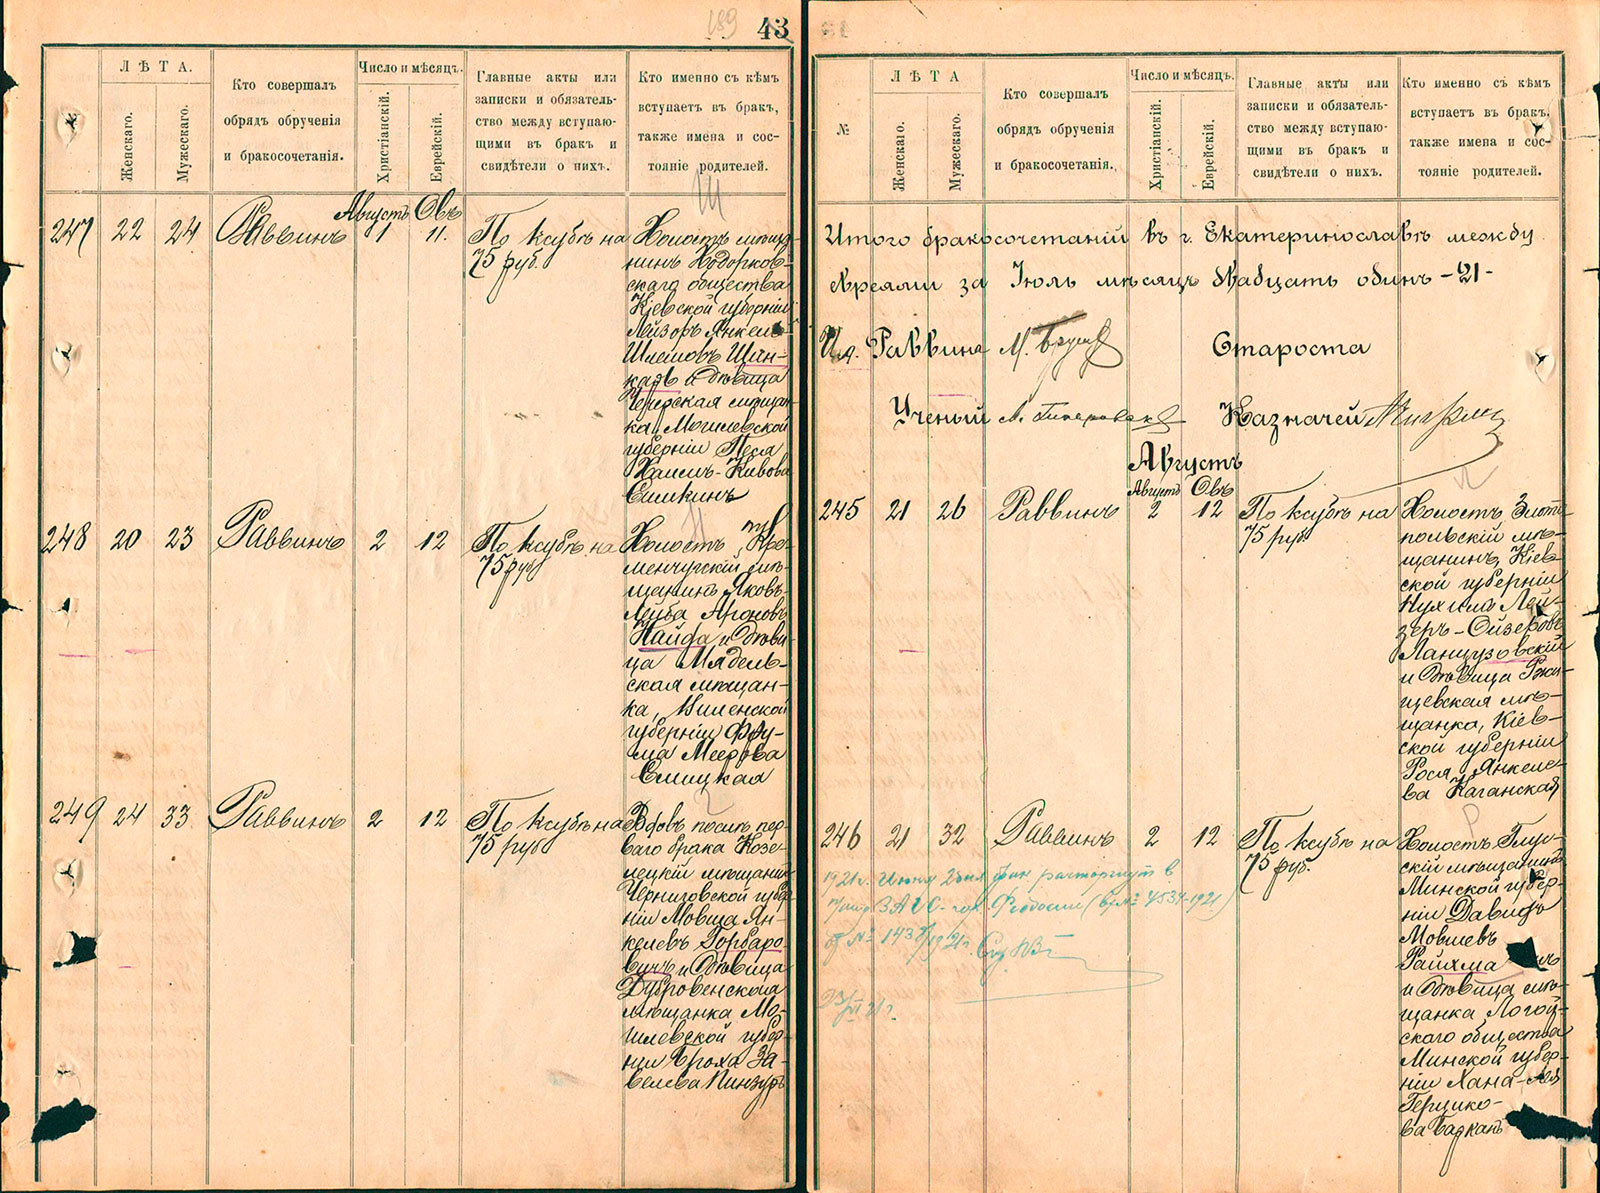 43
ЛѢТА.
Женскаго.
Мужескаго.
Кто совершалъ
обрядъ обрученія
и бракосочетанія.
Число и мѣсяцъ.
Христіанскій.
Еврейскій.
Главные акты или
записки и обязатель-
ство между вступаю-
щими въ бракъ и
свидѣтели о нихъ.
Кто именно съ кѣмъ
вступаетъ въ бракъ,
также имена и сос-
тояніе родителей.
247 22 24 Раввинъ
Августъ Овъ
1 11.
По ксубѣ на
75 руб.
Холостъ мѣща-
нинъ Ходорков-
скаго общества
Кіевской губерніи
Лейзоръ Янкель-
Шлемовъ Шин-
каръ и дѣвица
Чаусская мѣщан-
ка Могилевской
губерніи Песя
Хаимъ-Кивова
248 20 23 Раввинъ 2 12
По ксубѣ на
75 руб
Холостъ Кре-
менчугскій мѣ-
щанинъ Яковъ-
Лейба Ароновъ
Найда и дѣви-
ца Мядель-
ская мѣщан-
ка, Виленской
губерніи Фру-
ма Меерова
249 24 33 Раввинъ 2 12
По ксубѣ на
75 руб
Вдовъ послѣ пер-
ваго брака Козе-
лецкій мѣщанинъ
Черниговской губер-
ніи Мовша Ян-
келевъ Горбаро-
вичъ и дѣвица
Дубровенская
мѣщанка Мо-
гилевской губер-
ніи Броха За-
велева Пинзуръ
№
ЛѢТА
Женскаго.
Мужескаго.
Кто совершалъ
обрядъ обрученія
и бракосочетанія.
Число и мѣсяцъ.
Христіанскій.
Еврейскій.
Главные акты или
записки и обязатель-
ство между вступаю-
щими въ бракъ и
свидѣтели о нихъ.
Кто именно съ кѣмъ
вступаетъ въ бракъ,
также имена и сос-
тояніе родителей.
Итого бракосочетаній въ г. Екатеринославѣ между
Евреями за Іюль мѣсяцъ двадцать одинъ -21-
И.д. Раввина Староста
Ученый Казначей
Августъ
245 21 26 Раввинъ
Августъ Овъ
2 12
По ксубѣ на
75 руб.
Холостъ Злато-
польскій мѣ-
щанинъ, Кіев-
ской губерніи
Нухимъ Лей-
зеръ-Ойзеровъ
Ланцузовскій
и дѣвица Ржи-
щевская мѣ-
щанка, Кіев-
ской губерніи
Рося Янкеле-
ва Каганская
246 21 32 Раввинъ 2 12
По ксубѣ на
75 руб.
Холостъ Глус-
скій мѣщанинъ
Минской губер-
ніи Давидъ
Мовшевъ
Райхма нъ
и дѣвица мѣ-
щанка Логой-
скаго общества
Минской губер-
ніи Хана-Лея
Герцико-
ва
1921 г. Июня брак расторгнут в
ЗАГС Феодосии (В № 4534-1921)